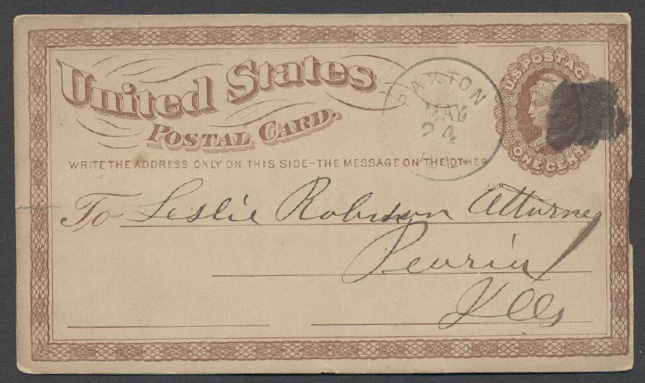 United States
POSTAL CARD.
PAXTON
MAY
24
U.S. POSTAGE
ONE CENT
WRITE THE ADDRESS ONLY ON THIS SIDE-THE MESSAGE ON THE OTHER
To Leslie Robison Attorney
Peoria
Ills